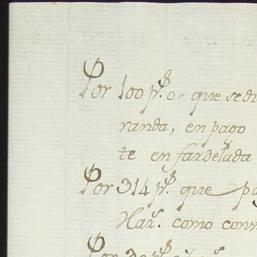 Por 100 p.s que se di
randa, en pago
te en fardelada
Por 314 p.s que pa
Har.s como con
Por